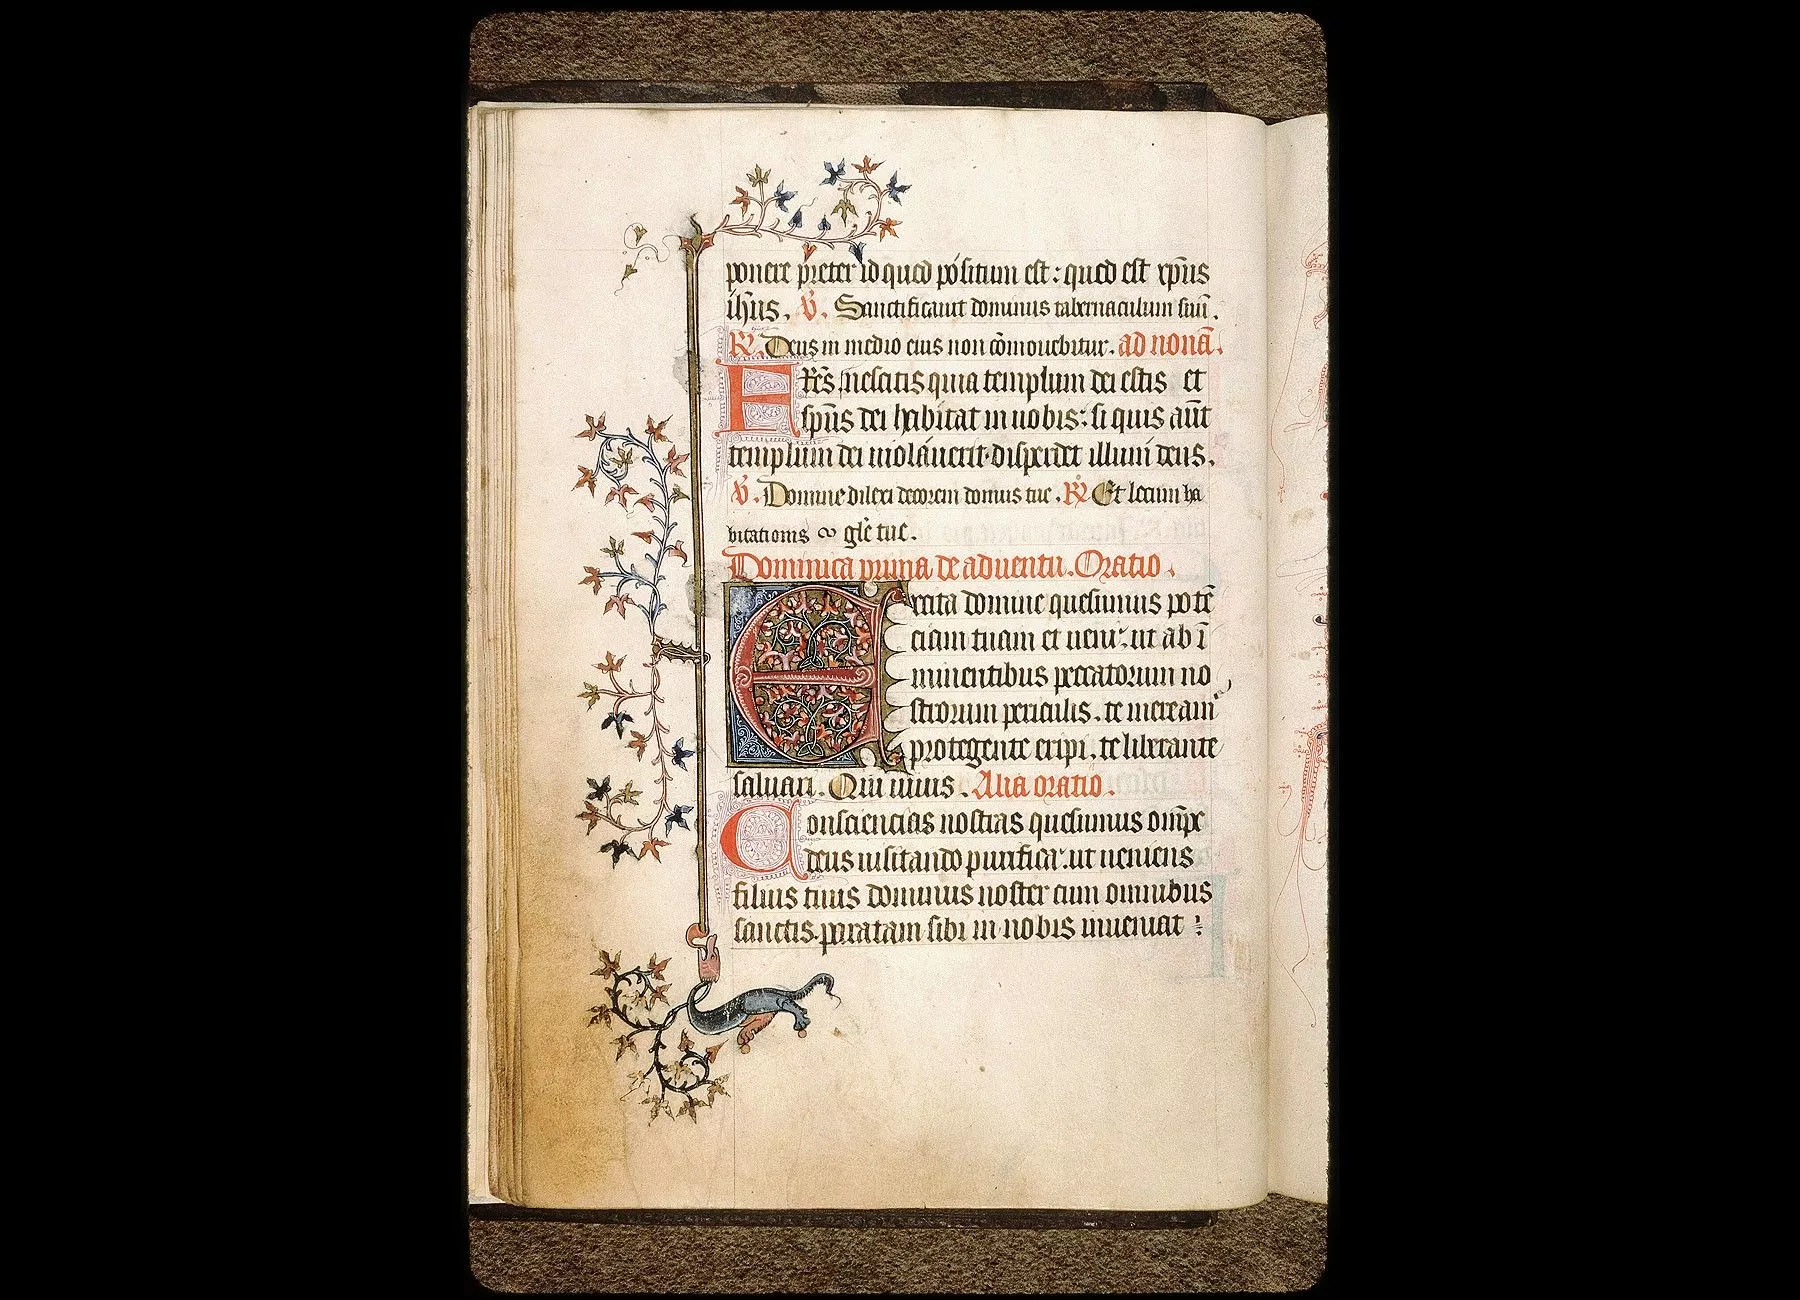 ponere preter id quod positum est : quod est xp̄us
ih̄us. V̄. Sanctificauit dominus tabernaculum suū.
R̄. Deus in medio eius non cōmouebitur. ad nonā.
Fr̄es nescitis quia templum dei estis et
sp̄us dei habitat in uobis : si quis aūt
templum dei uiolauerit. disperdet illum deus.
V̄. Domine dilexi decorem domus tue. R̄. Et locum ha
bitationis gl̄e tue.
Dominica prima de aduentu. Oratio.
Excita domine quesumus potē
ciam tuam et ueni : ut ab ī
minentibus peccatorum no
strorum periculis. te mereamur
protegente eripi. te liberante
saluari. Qui uiuis. Alia oratio.
Consciencias nostras quesumus om̄ps
deus uisitando purifica. ut ueniens
filius tuus dominus noster cum omnibus
sanctis. paratam sibi in nobis inueniat :